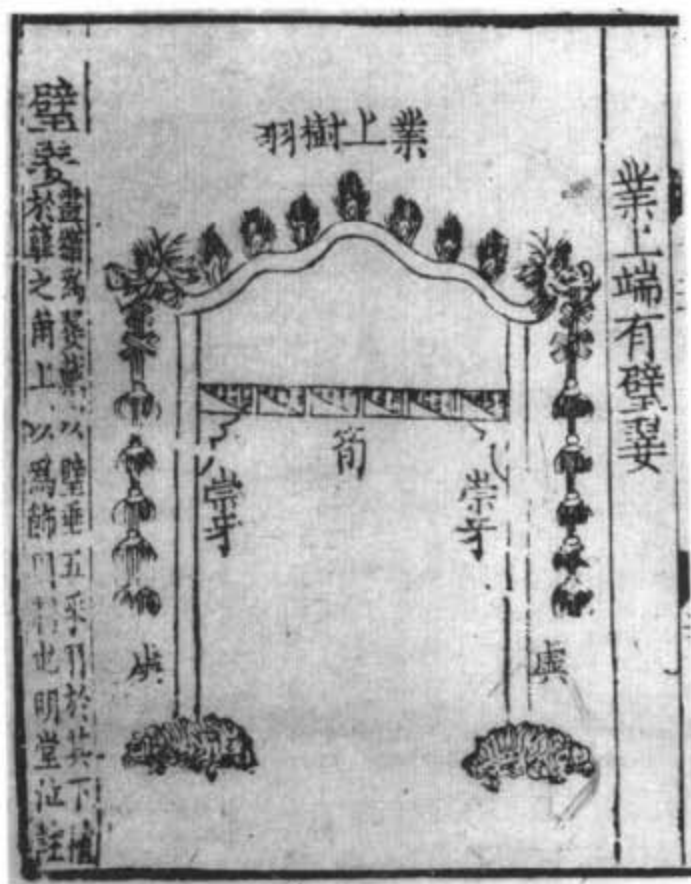 業上端有璧翣
業上樹羽
筍
崇牙
崇牙
虡
虡
璧翣
畫繒為翣戴以璧垂五采羽於其下樹
於簨之角上以為飾也明堂位註